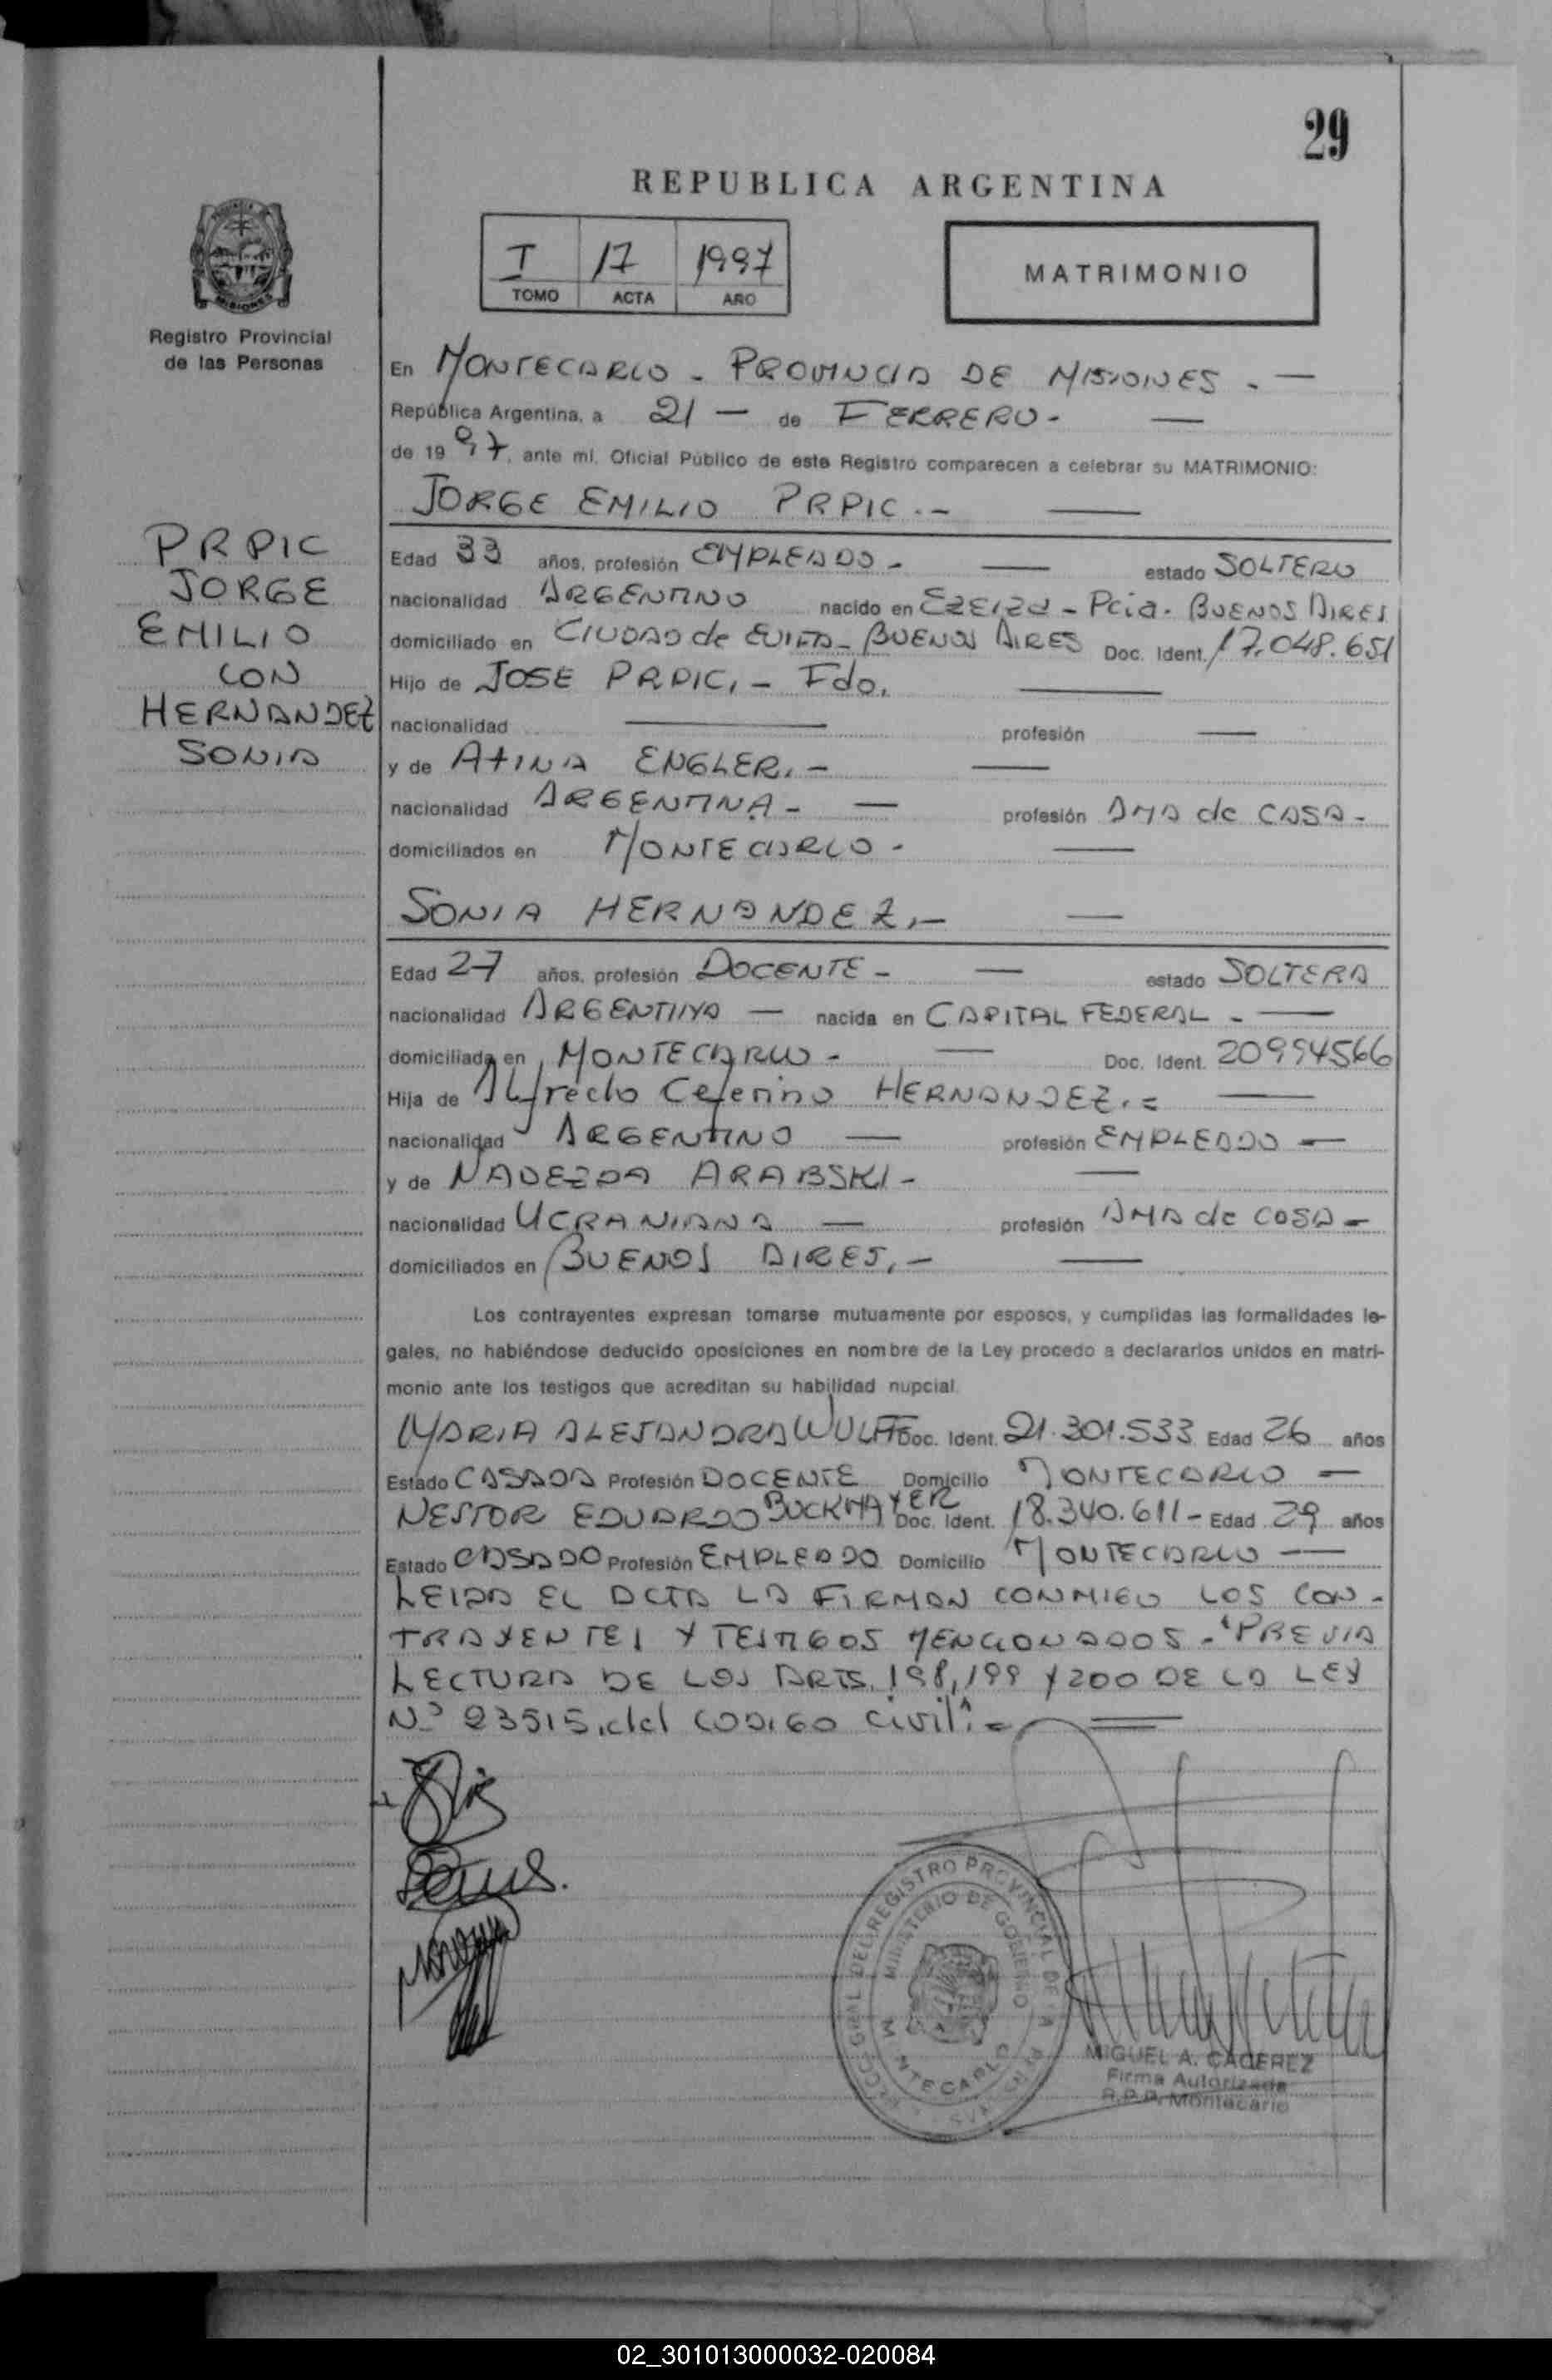 29
REPUBLICA ARGENTINA
I 17 1997
TOMO ACTA AÑO
MATRIMONIO
Registro Provincial
de las Personas
En MONTECARLO - PROVINCIA DE MISIONES . —
República Argentina, a 21 — de FEBRERO - —
de 1997, ante mí, Oficial Público de este Registro comparecen a celebrar su MATRIMONIO:
JORGE EMILIO PRPIC .- —
PRPIC
JORGE
EMILIO
CON
HERNANDEZ
SONIA
Edad 33 años, profesión EMPLEADO - — estado SOLTERO
nacionalidad ARGENTINO nacido en EZEIZA - Pcia. BUENOS AIRES
domiciliado en CIUDAD de EVITA - BUENOS AIRES Doc. Ident. 17.048.651
Hijo de JOSE PRPIC, - Fdo. —
nacionalidad — profesión —
y de ATINA ENGLER. - —
nacionalidad ARGENTINA - — profesión AMA de CASA -
domiciliados en MONTECARLO - —
SONIA HERNANDEZ .- —
Edad 27 años, profesión DOCENTE - — estado SOLTERA
nacionalidad ARGENTINA — nacida en CAPITAL FEDERAL - —
domiciliada en MONTECARLO - — Doc. Ident. 20994566
Hija de Alfredo Ceferino HERNANDEZ. = —
nacionalidad ARGENTINO — profesión EMPLEADO —
y de NADEZDA ARABSKI - —
nacionalidad UCRANIANA — profesión AMA de CASA -
domiciliados en BUENOS AIRES. - —
Los contrayentes expresan tomarse mutuamente por esposos, y cumplidas las formalidades le-
gales, no habiéndose deducido oposiciones en nombre de la Ley procedo a declararlos unidos en matri-
monio ante los testigos que acreditan su habilidad nupcial.
MARIA ALEJANDRA WULFF Doc. Ident. 21.301.533 Edad 26 años
Estado CASADA Profesión DOCENTE Domicilio MONTECARLO —
NESTOR EDUARDO BUCKMAYER Doc. Ident. 18.340.611 - Edad 29 años
Estado CASADO Profesión EMPLEADO Domicilio MONTECARLO —
LEIDA EL ACTA LA FIRMAN CONMIGO LOS CON-
TRAYENTES Y TESTIGOS MENCIONADOS - "PREVIA
LECTURA DE LOS ARTS. 198, 199 Y 200 DE LA LEY
Nº 23515, del CODIGO civil" =
REGISTRO PROVINCIAL DE
MINISTERIO DE GOBIERNO
MIGUEL A. CACEREZ
Firma Autorizada
R.P.P. Montecarlo
02_301013000032-020084